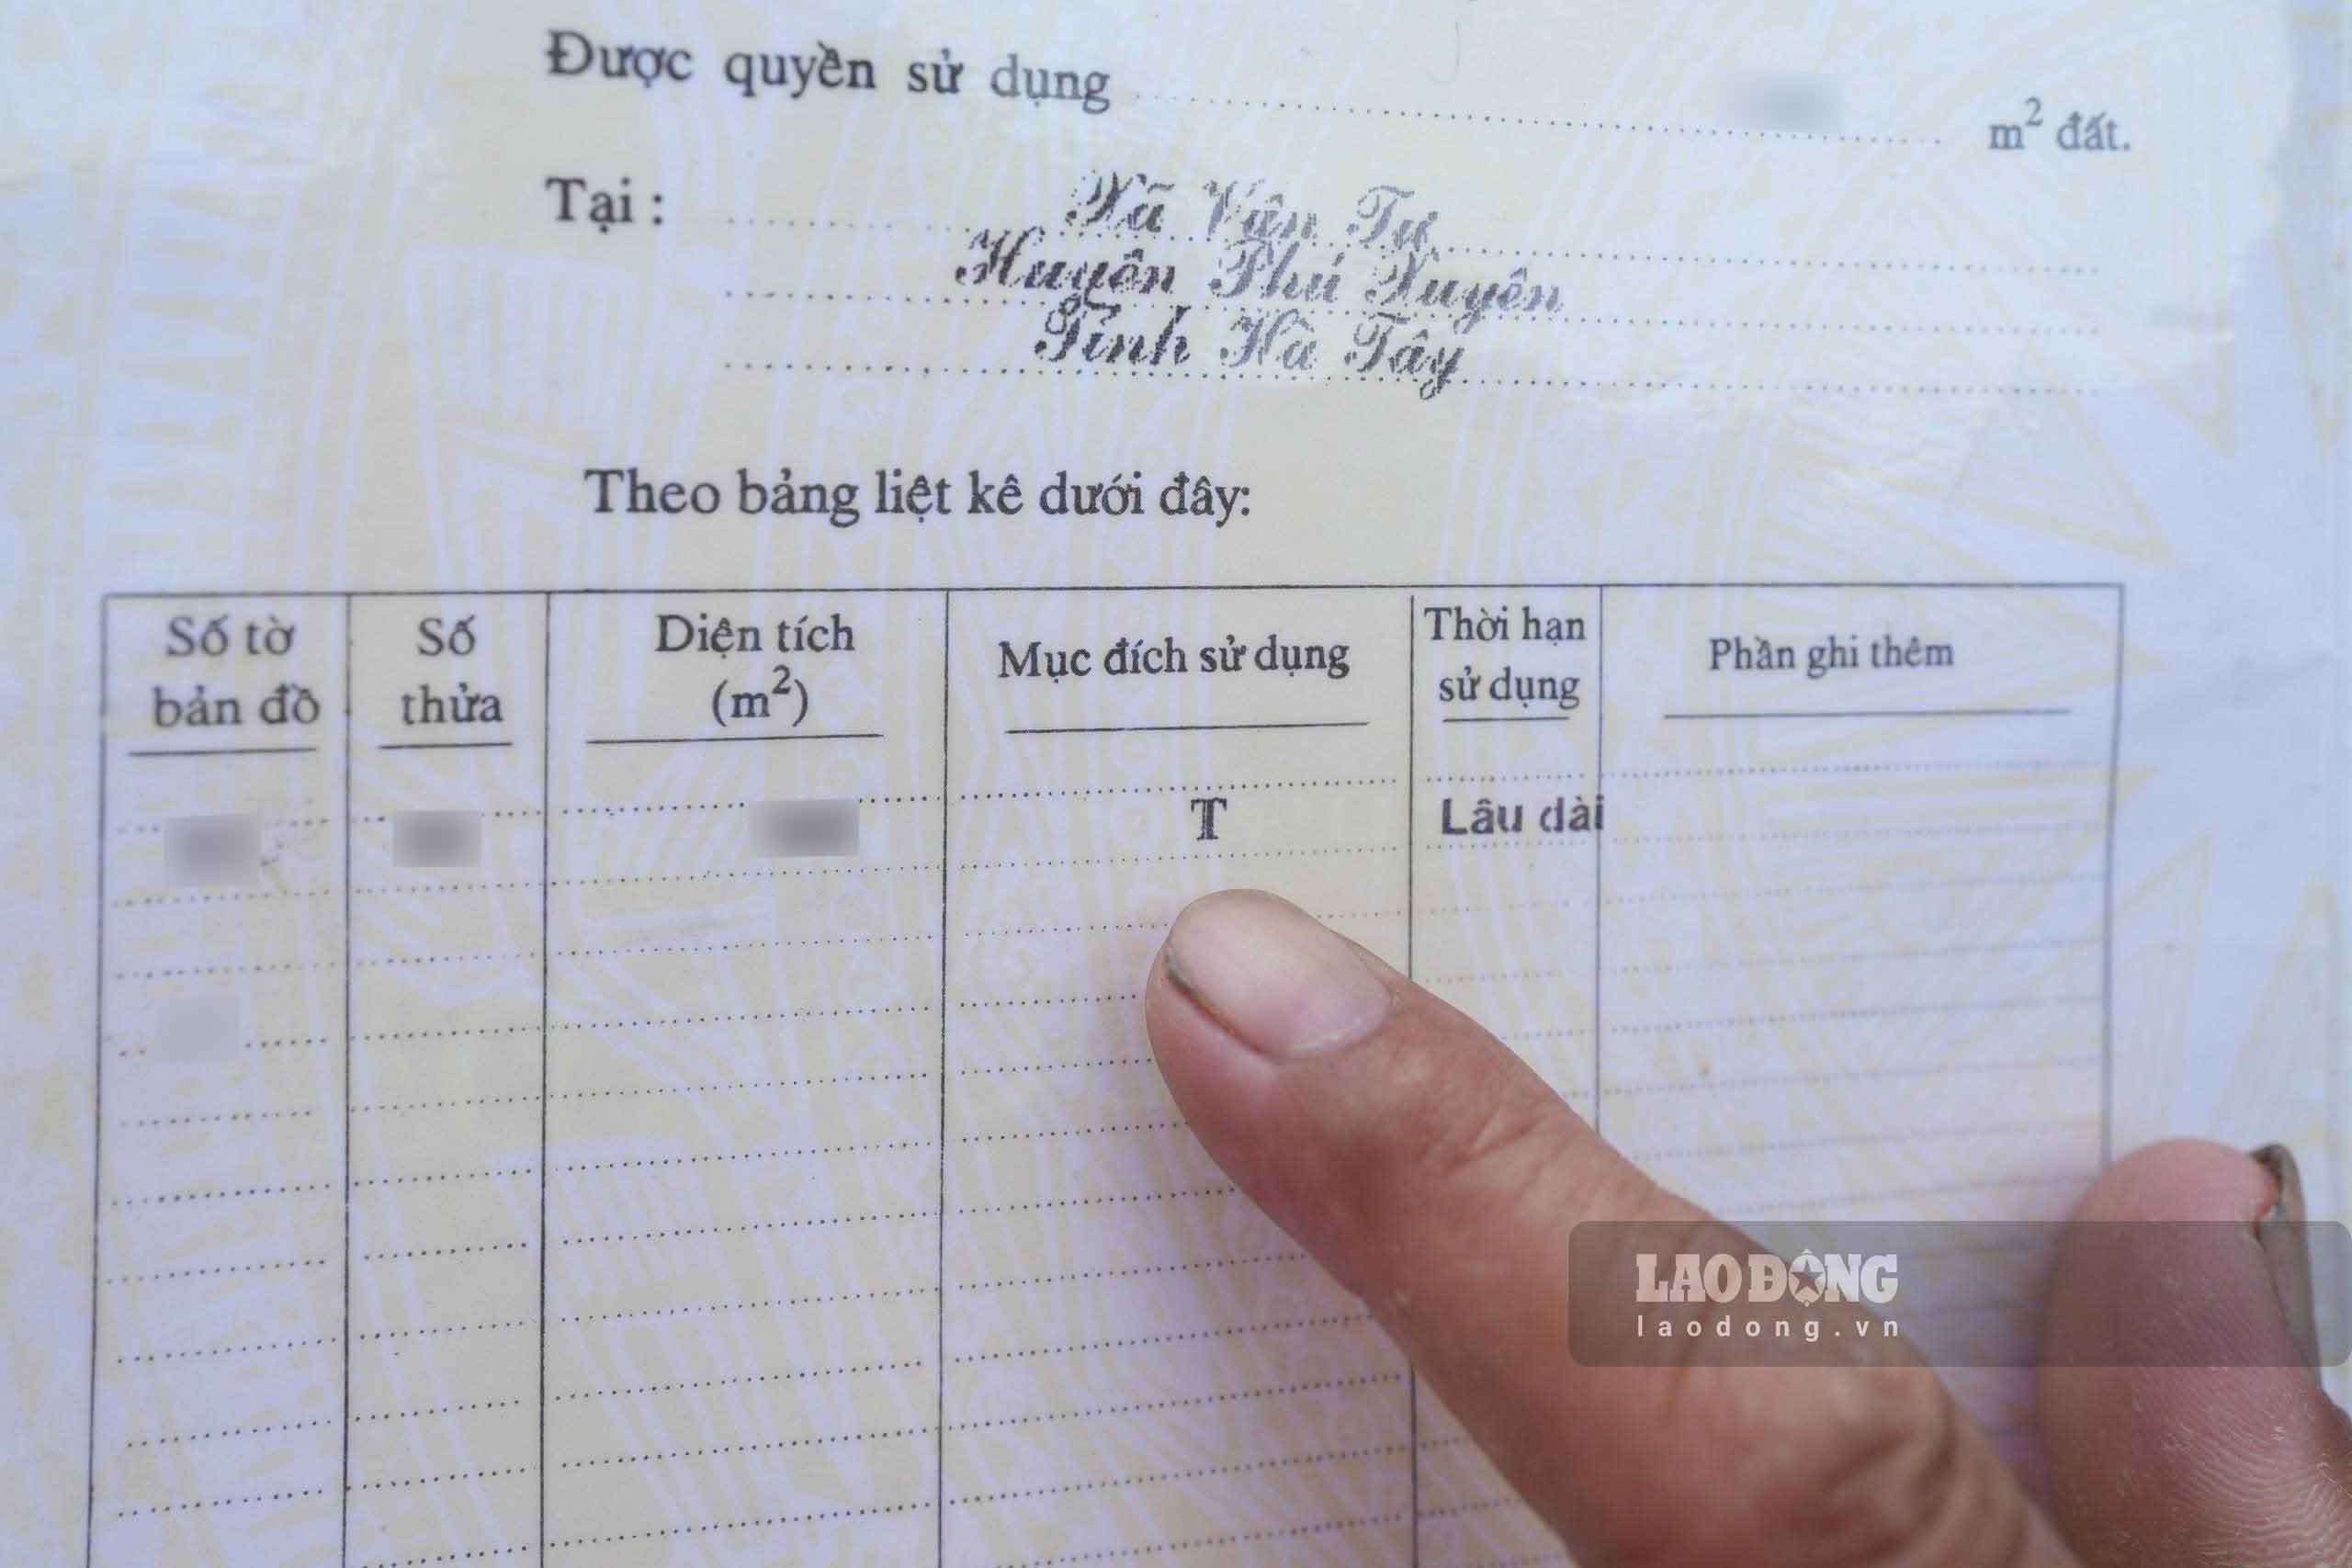 Được quyền sử dụng m² đất.
Tại : Xã Vân Tự
Huyện Phú Xuyên
Tỉnh Hà Tây
Theo bảng liệt kê dưới đây:
Số tờ bản đồ
Số thửa
Diện tích (m²)
Mục đích sử dụng
Thời hạn sử dụng
Phần ghi thêm
T
Lâu dài
LAO ĐỘNG
laodong.vn